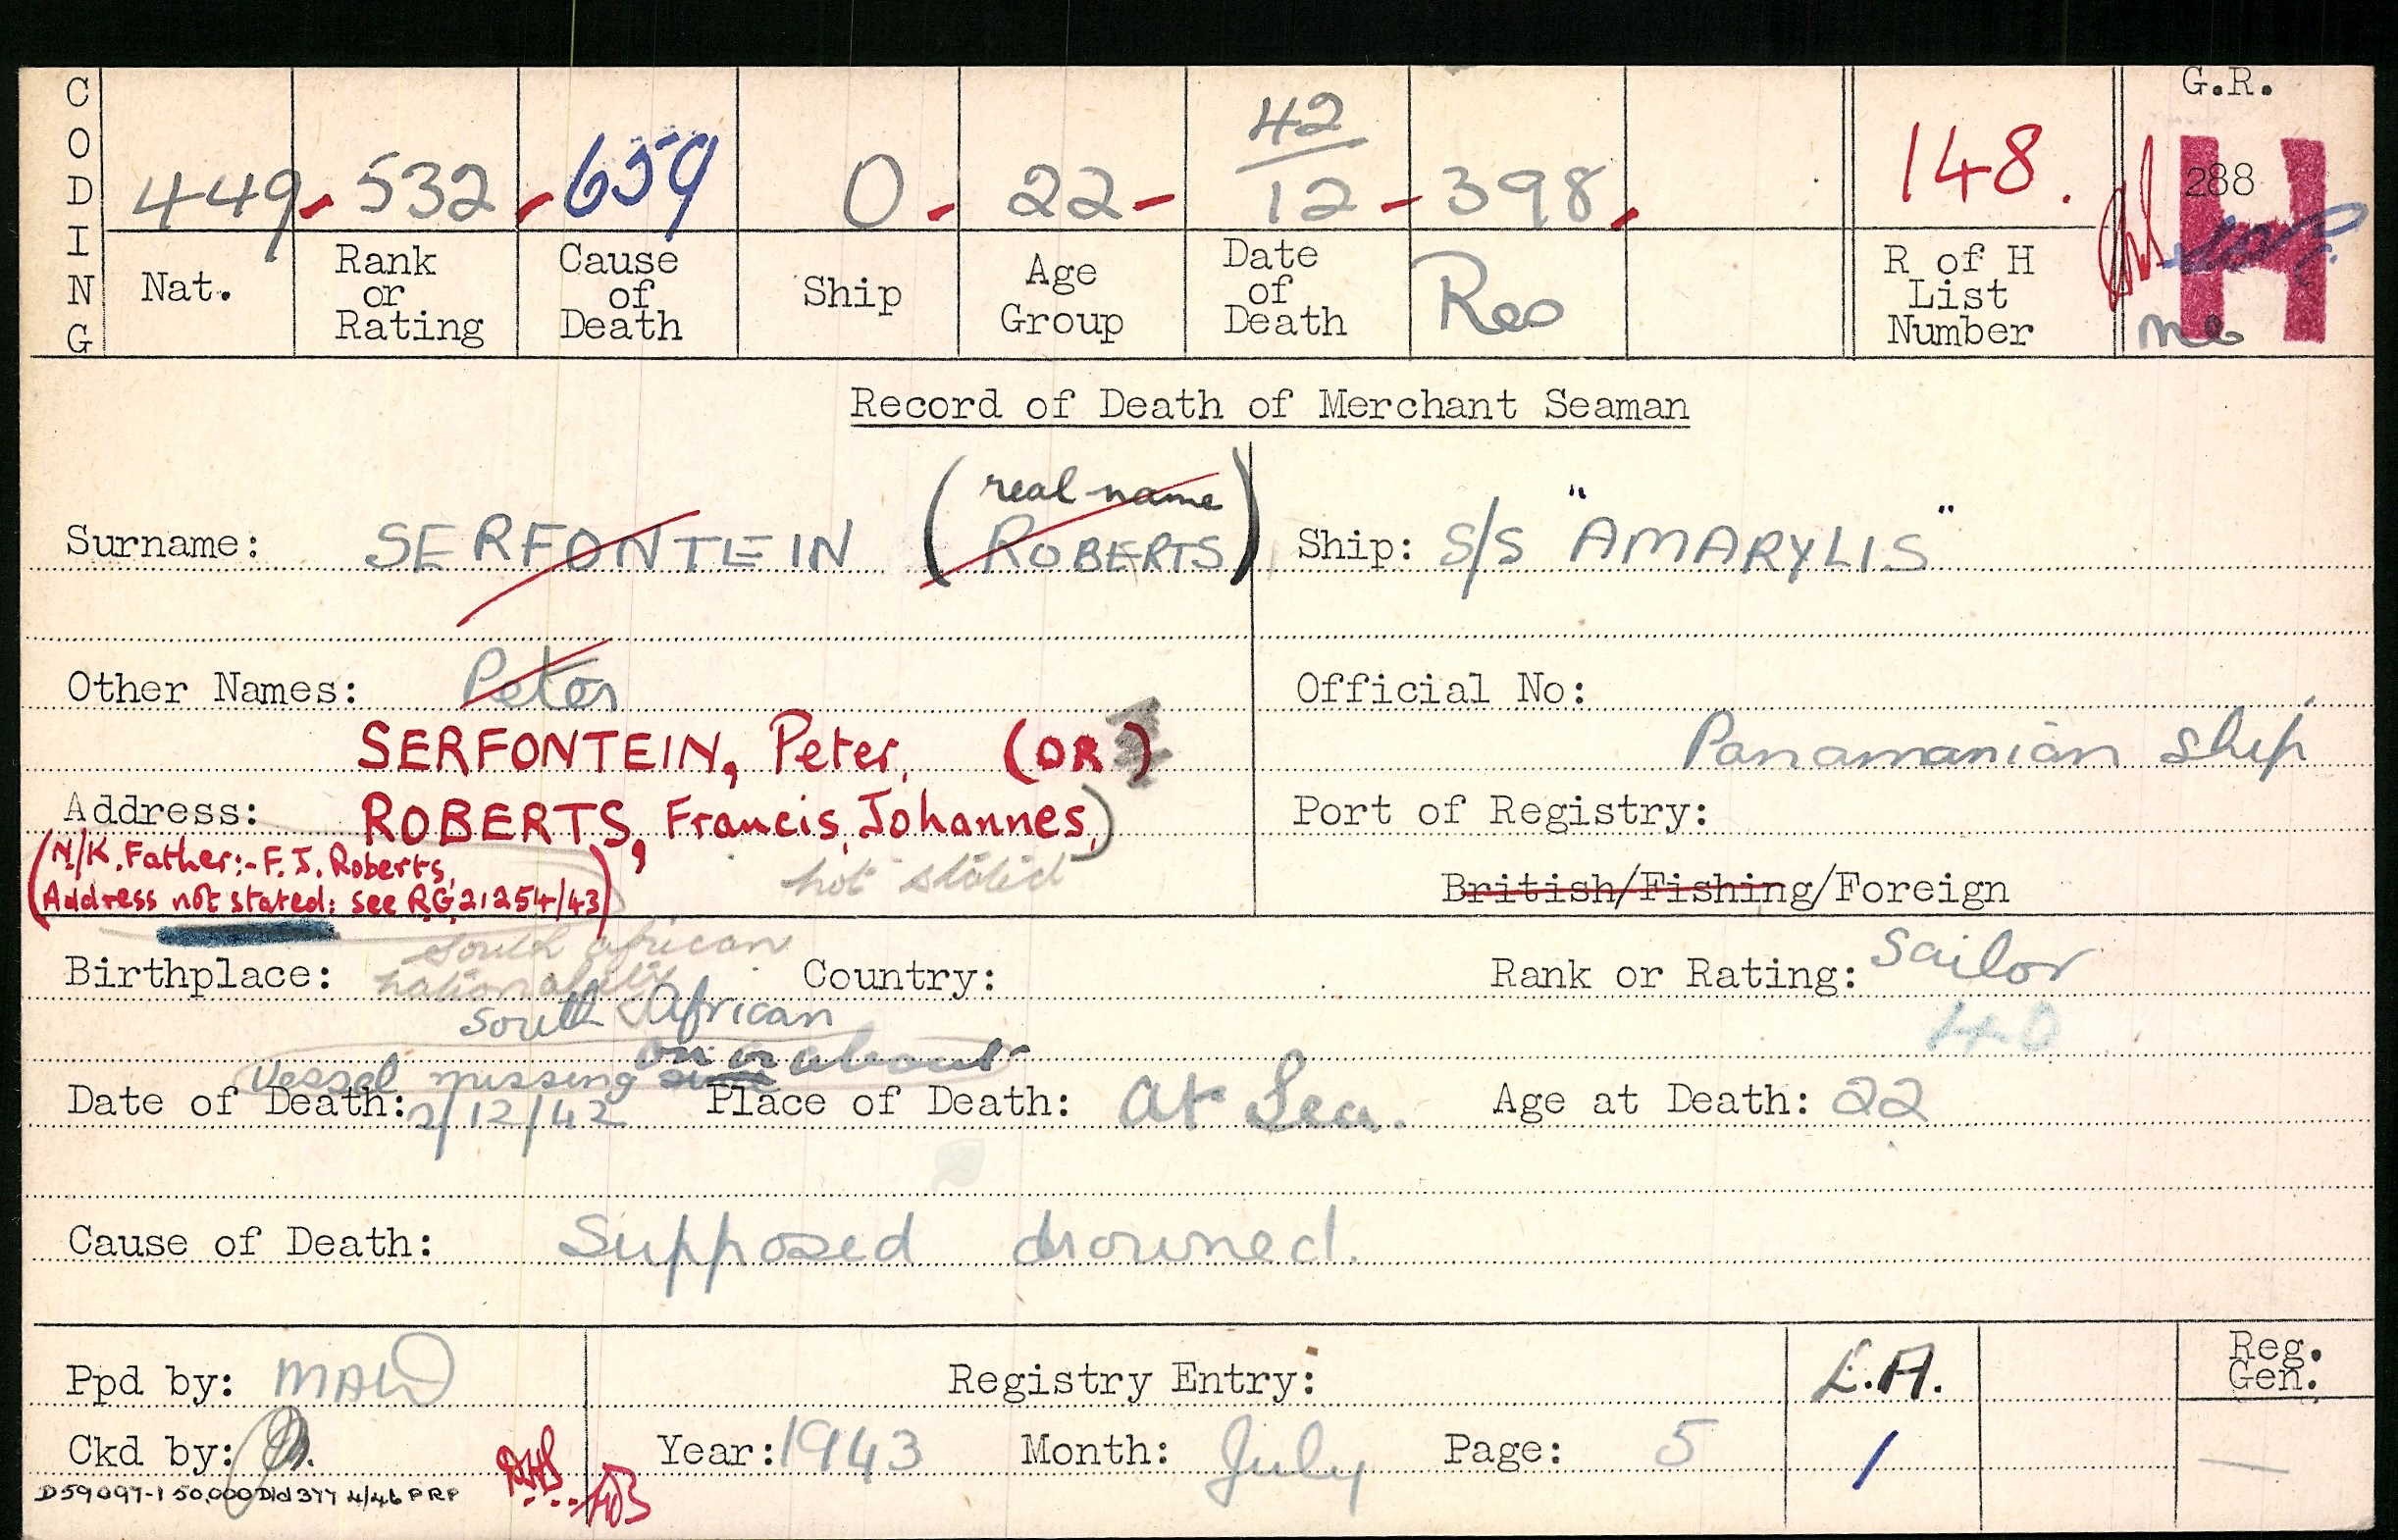 CODING
449 - 532 - 659 0 - 22 - 42/12 - 398. 148. G.R. 288
Nat. Rank or Rating Cause of Death Ship Age Group Date of Death Res R of H List Number H
Record of Death of Merchant Seaman
(real name
Surname: SERFONTEIN ROBERTS) Ship: S/S "AMARYLIS"
Other Names: Peter Official No:
SERFONTEIN, Peter, (OR) Panamanian ship
Address: ROBERTS, Francis, Johannes,) Port of Registry:
(N/K. Father:- F. J. Roberts, not stated
Address not stated: see RG21254/43) British/Fishing/Foreign
south african
Birthplace: nationality Country: Rank or Rating: Sailor
South African
Vessel missing on or about
Date of Death: 2/12/42 Place of Death: at Sea. Age at Death: 22
Cause of Death: Supposed drowned.
Ppd by: MAW Registry Entry: L.A. Reg. Gen.
Ckd by: Year: 1943 Month: July Page: 5 / —
D59097-1 50,000 D/d 377 4/46 PRP